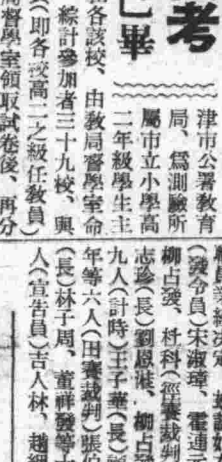 考
已畢
津市公署教育
局、爲測驗所
屬市立小學高
二年級學生主
各該校、由教局督學室命
綜計參加者三十九校、與
(即各校高二之級任教員)
督學室領取試卷後、再分
(發令員)宋淑璋、霍連
柳占發、杜科(徑賽裁判
志珍(長)劉恩
九人(計時)王子華(長)
年等六人(田賽裁判)張
(長)林子周、董祥發等
人(宣告員)吉人林、趙